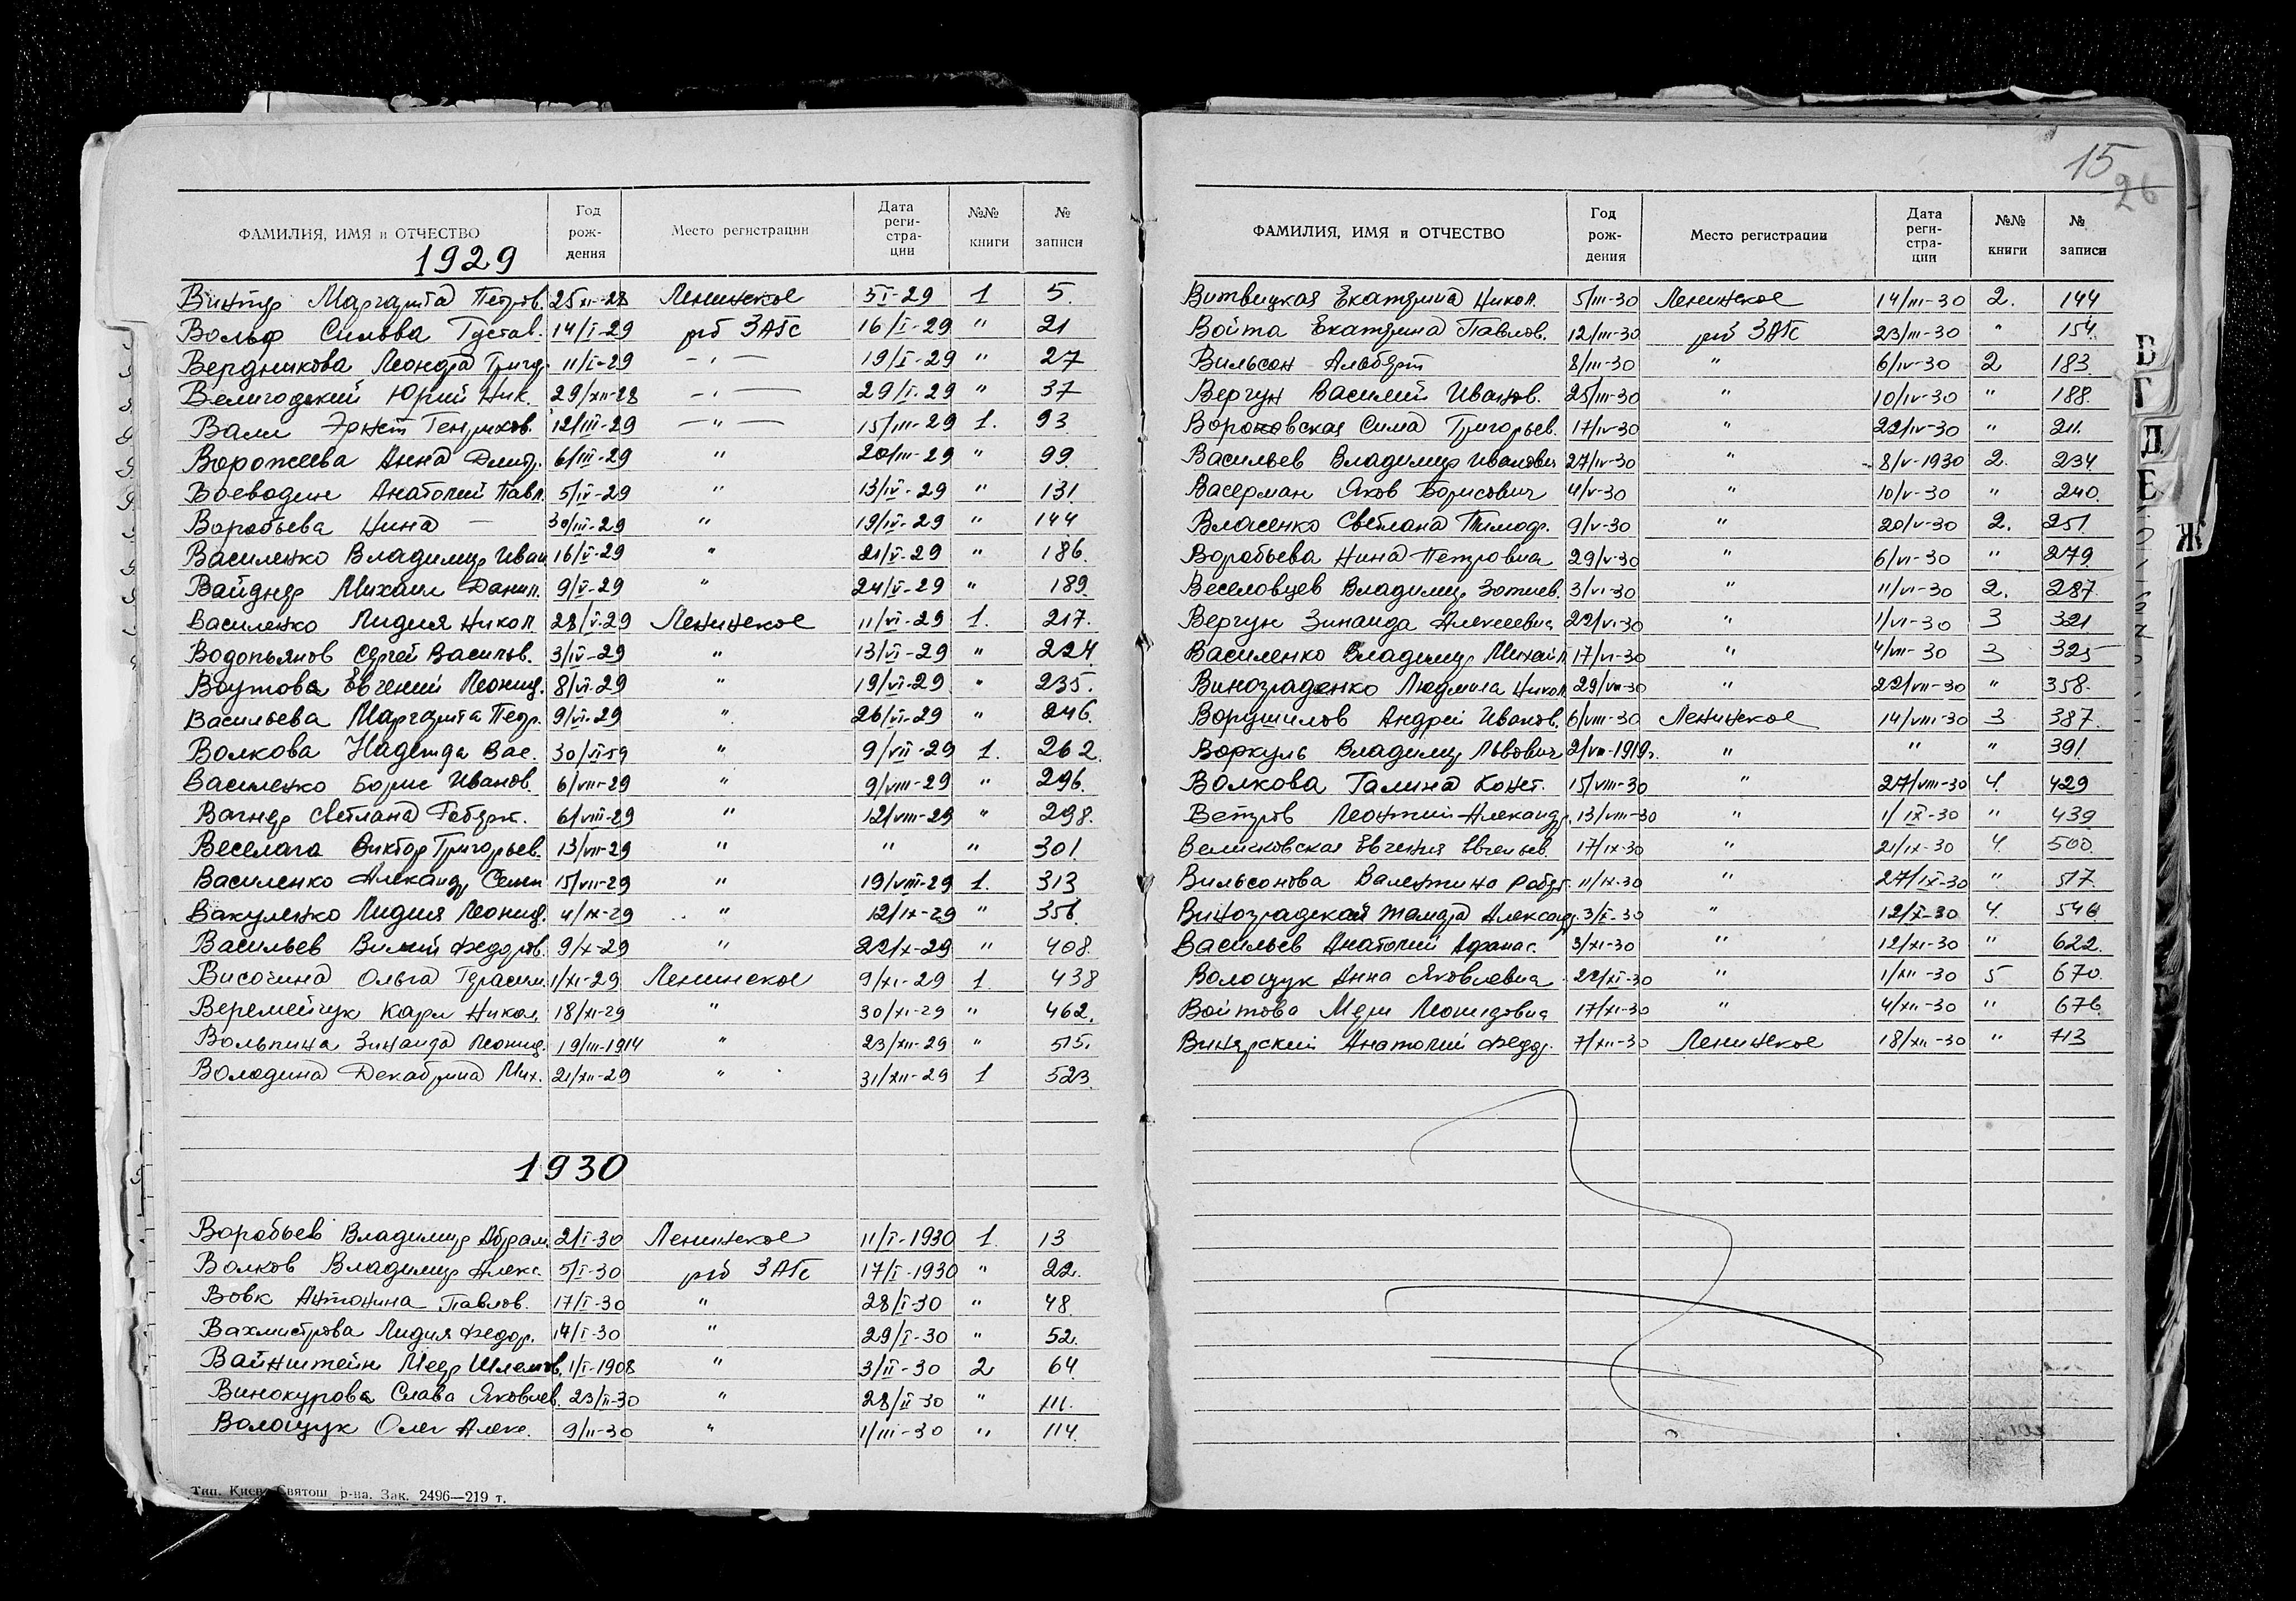 ФАМИЛИЯ, ИМЯ и ОТЧЕСТВО Год рождения Место регистрации Дата регистрации №№ книги № записи
1929
Винтер Маргарита Петров. 25/XI-28 Ленинское 5/I-29 1 5.
Вольф Сильва Густав. 14/I-29 р/б ЗАГС 16/I-29 " 21
Вердникова Леонора Григ. 11/I-29 — " — 19/I-29 " 27
Велигодский Юрий Ник. 29/XII-28 — " — 29/I-29 " 37
Валл Эрнст Генрихов. 12/III-29 — " — 15/III-29 1. 93
Ворожеева Анна Дмитр. 6/III-29 " 20/III-29 " 99
Воеводин Анатолий Павл. 5/IV-29 " 13/IV-29 " 131
Воробьева Нина — 30/III-29 " 19/IV-29 " 144
Василенко Владимир Иван 16/V-29 " 21/V-29 " 186
Вайднер Михаил Данил. 9/V-29 " 24/V-29 " 189
Василенко Лидия Никол 28/V-29 Ленинское 11/VI-29 1. 217.
Водопьянов Сергей Васильев. 3/IV-29 " 13/VI-29 " 224
Воутова Евгений Леонид. 8/VI-29 " 19/VI-29 " 235.
Васильева Маргарита Педр. 9/VI-29 " 26/VI-29 " 246.
Волкова Надежда Вас. 30/VI-59 " 9/VII-29 1. 262
Василенко Борис Иванов. 6/VIII-29 " 9/VIII-29 " 296.
Вагнер Светлана Роберт. 6/VIII-29 " 12/VIII-29 " 298.
Веселага Виктор Григорьев. 13/VII-29 " " " 301
Василенко Александр Семен 15/VII-29 " 19/VIII-29 1. 313
Вакуленко Лидия Леонид. 4/IX-29 " 12/IX-29 " 356.
Васильев Вилий Федоров. 9/X-29 " 22/X-29 " 408.
Височина Ольга Герасим. 1/XI-29 Ленинское 9/XI-29 1 438
Веремейчук Карл Никол. 18/XI-29 " 30/XI-29 " 462.
Вольпина Зинаида Леонид. 19/III-1914 " 23/XII-29 " 515.
Володина Декабрина Мих. 21/XII-29 " 31/XII-29 1 523
1930
Воробьев Владимир Абрам. 2/I-30 Ленинское 11/I-1930 1. 13
Волков Владимир Алекс. 5/I-30 р/б ЗАГС 17/I-1930 " 22.
Вовк Антонина Павлов. 17/I-30 " 28/I-30 " 48
Вахмистрова Лидия Федор. 14/I-30 " 29/I-30 " 52.
Вайнштейн Меер Шлемов. 1/I-1908 " 3/II-30 2 64
Винокурова Слава Яковлев. 23/II-30 " 28/II-30 " 111.
Волощук Олег Алекс. 9/II-30 " 1/III-30 " 114.
Тип. Киев. Святош р-на. Зак. 2496—219 т.
15
26
ФАМИЛИЯ, ИМЯ и ОТЧЕСТВО Год рождения Место регистрации Дата регистрации №№ книги № записи
Витвицкая Екатерина Никол. 5/III-30 Ленинское 14/III-30 2. 144
Войта Екатерина Павлов. 12/III-30 р/б ЗАГС 23/III-30 " 154.
Вильсон Альберт 8/III-30 " 6/IV-30 2 183
Вергун Василий Иванов. 25/III-30 " 10/IV-30 " 188.
Вороновская Сима Григорьев. 17/IV-30 " 22/IV-30 " 211.
Васильев Владимир Иванович 27/IV-30 " 8/V-1930 2. 234.
Васерман Яков Борисович 4/V-30 " 10/V-30 " 240.
Власенко Светлана Тимоф. 9/V-30 " 20/V-30 2. 251.
Воробьева Нина Петровна 29/V-30 " 6/VI-30 " 279.
Веселовцев Владимир Зотиев. 3/VI-30 " 11/VI-30 2. 287.
Вергун Зинаида Алексеевна 22/VI-30 " 1/VI-30 3 321
Василенко Владимир Михайл. 17/VI-30 " 4/VII-30 3 325
Винограденко Людмила Никол. 29/VII-30 " 22/VII-30 " 358.
Ворушилов Андрей Иванов. 6/VIII-30 Ленинское 14/VIII-30 3 387.
Воркуль Владимир Львович 2/VII-1919г. " " " 391
Волкова Галина Конст. 15/VIII-30 " 27/VIII-30 4. 429
Ветров Леонтий Александр. 13/VIII-30 " 1/IX-30 " 439
Величковская Евгения Евгеньев. 17/IX-30 " 21/IX-30 4. 500.
Вильсонова Валентина Роберт. 11/IX-30 " 27/IX-30 " 517.
Виноградская Тамара Александр. 3/X-30 " 12/X-30 4. 546
Васильев Анатолий Афанас. 3/XI-30 " 12/XI-30 " 622.
Волощук Анна Яковлевна 22/XI-30 " 1/XII-30 5 670.
Войтова Мери Леонидовна 17/XI-30 " 4/XII-30 " 676
Винярский Анатолий Федор. 7/XII-30 Ленинское 18/XII-30 " 713
В
Г
Д
Е
Ж